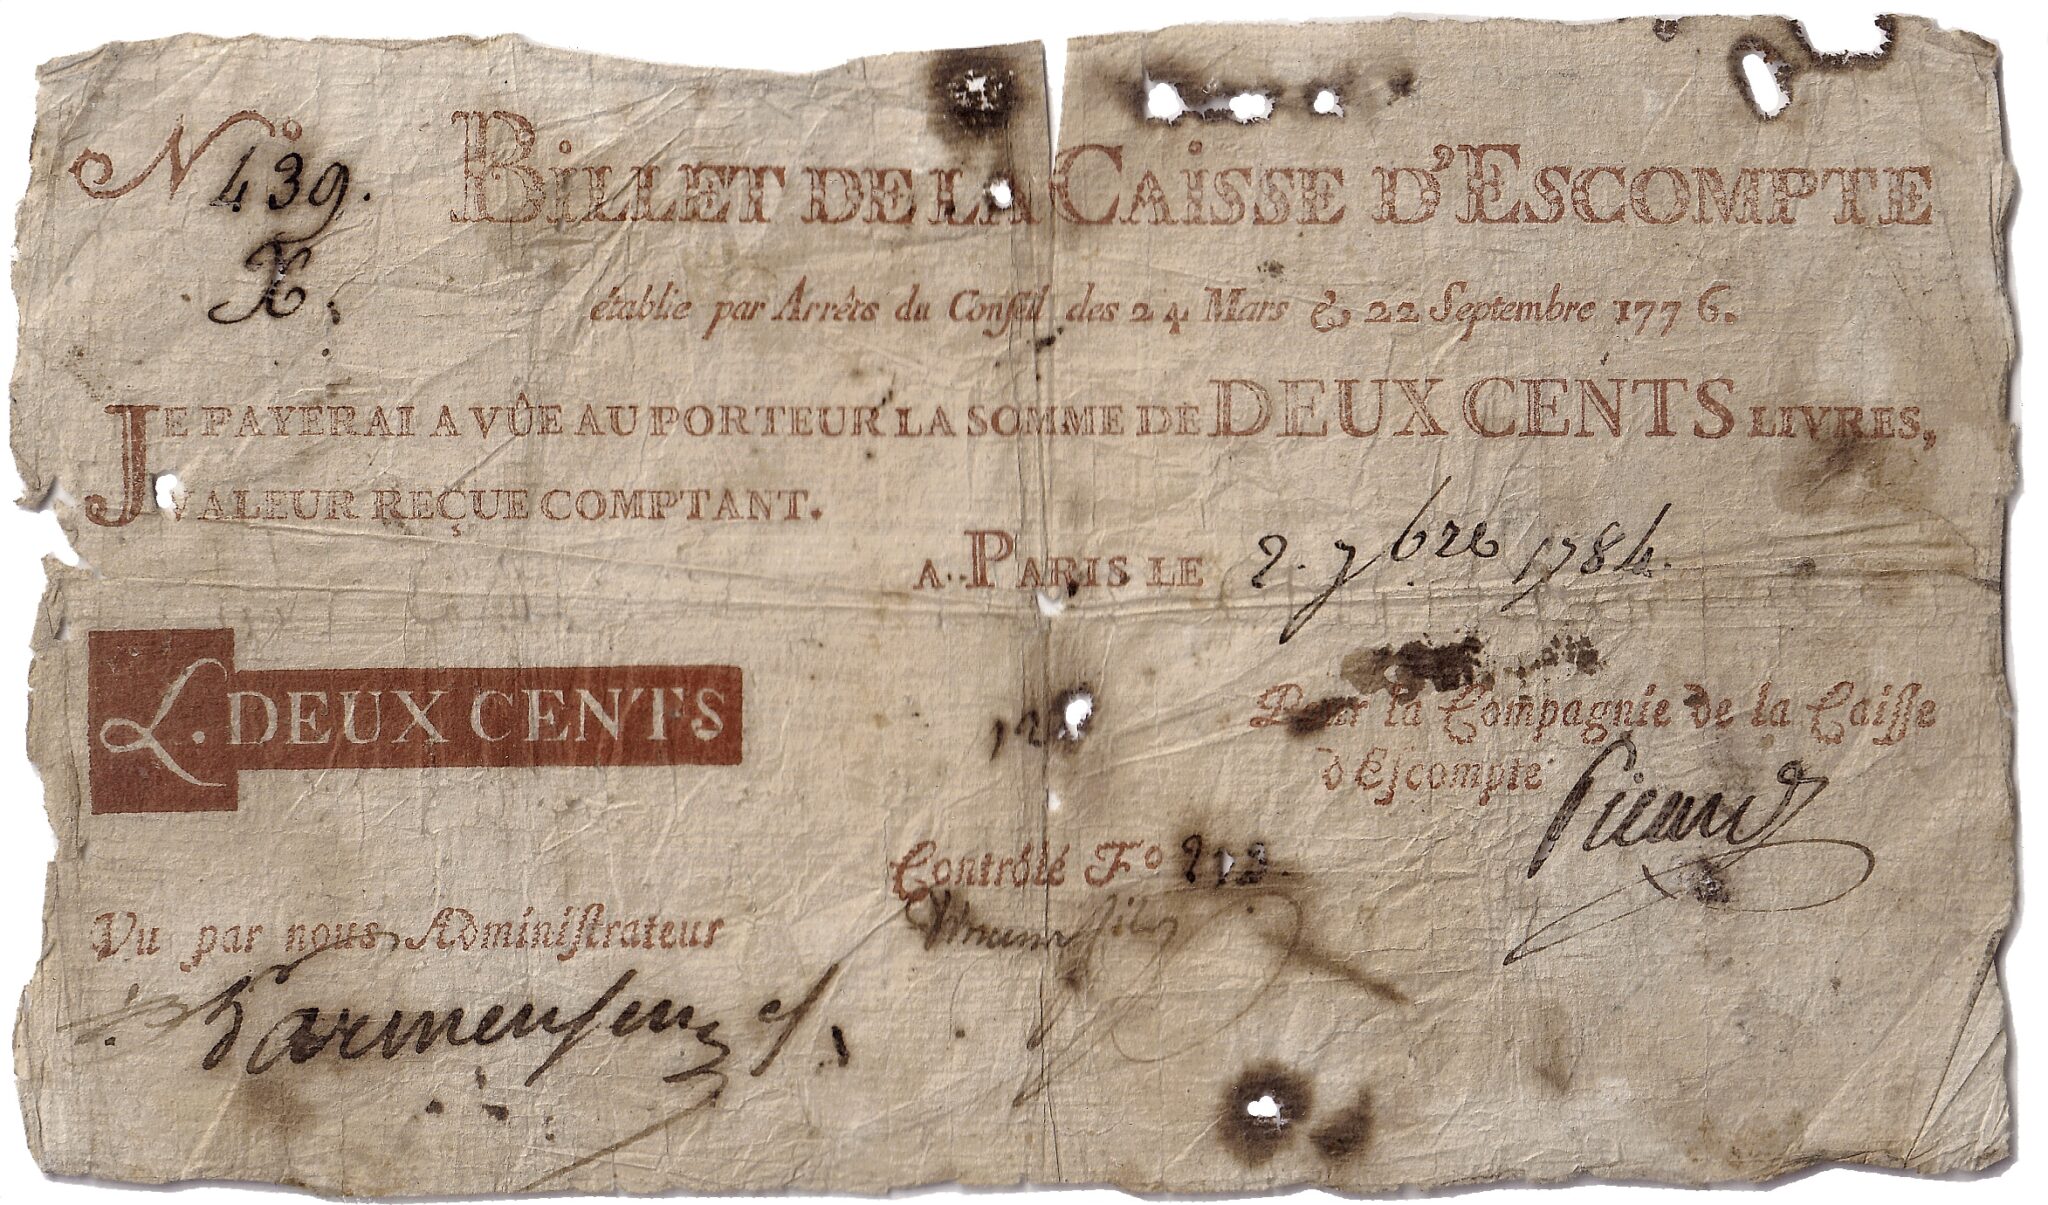 N.º 439. BILLET DE LA CAISSE D'ESCOMPTE
X.
établie par Arrêts du Conseil des 24 Mars & 22 Septembre 1776.
JE PAYERAI A VÛE AU PORTEUR LA SOMME DE DEUX CENTS LIVRES,
VALEUR REÇUE COMPTANT.
A..PARIS LE 2. 7bre 1784.
L. DEUX CENTS
Pour la Compagnie de la Caisse
d'Escompte
Picard
Contrôlé Fº 213
Vu par nous Administrateur